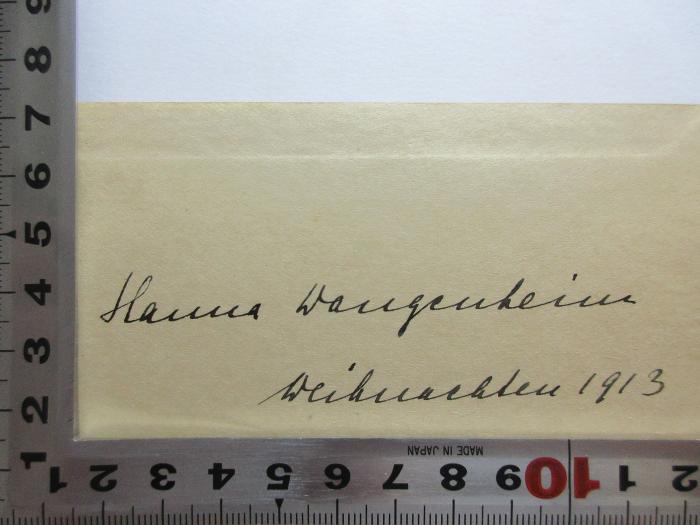 Hanna Wangenheim
Weihnachten 1913
9
8
7
6
5
4
3
2
1
1 2 3 4 5 6 7 8 9 10 1 2
MADE IN JAPAN